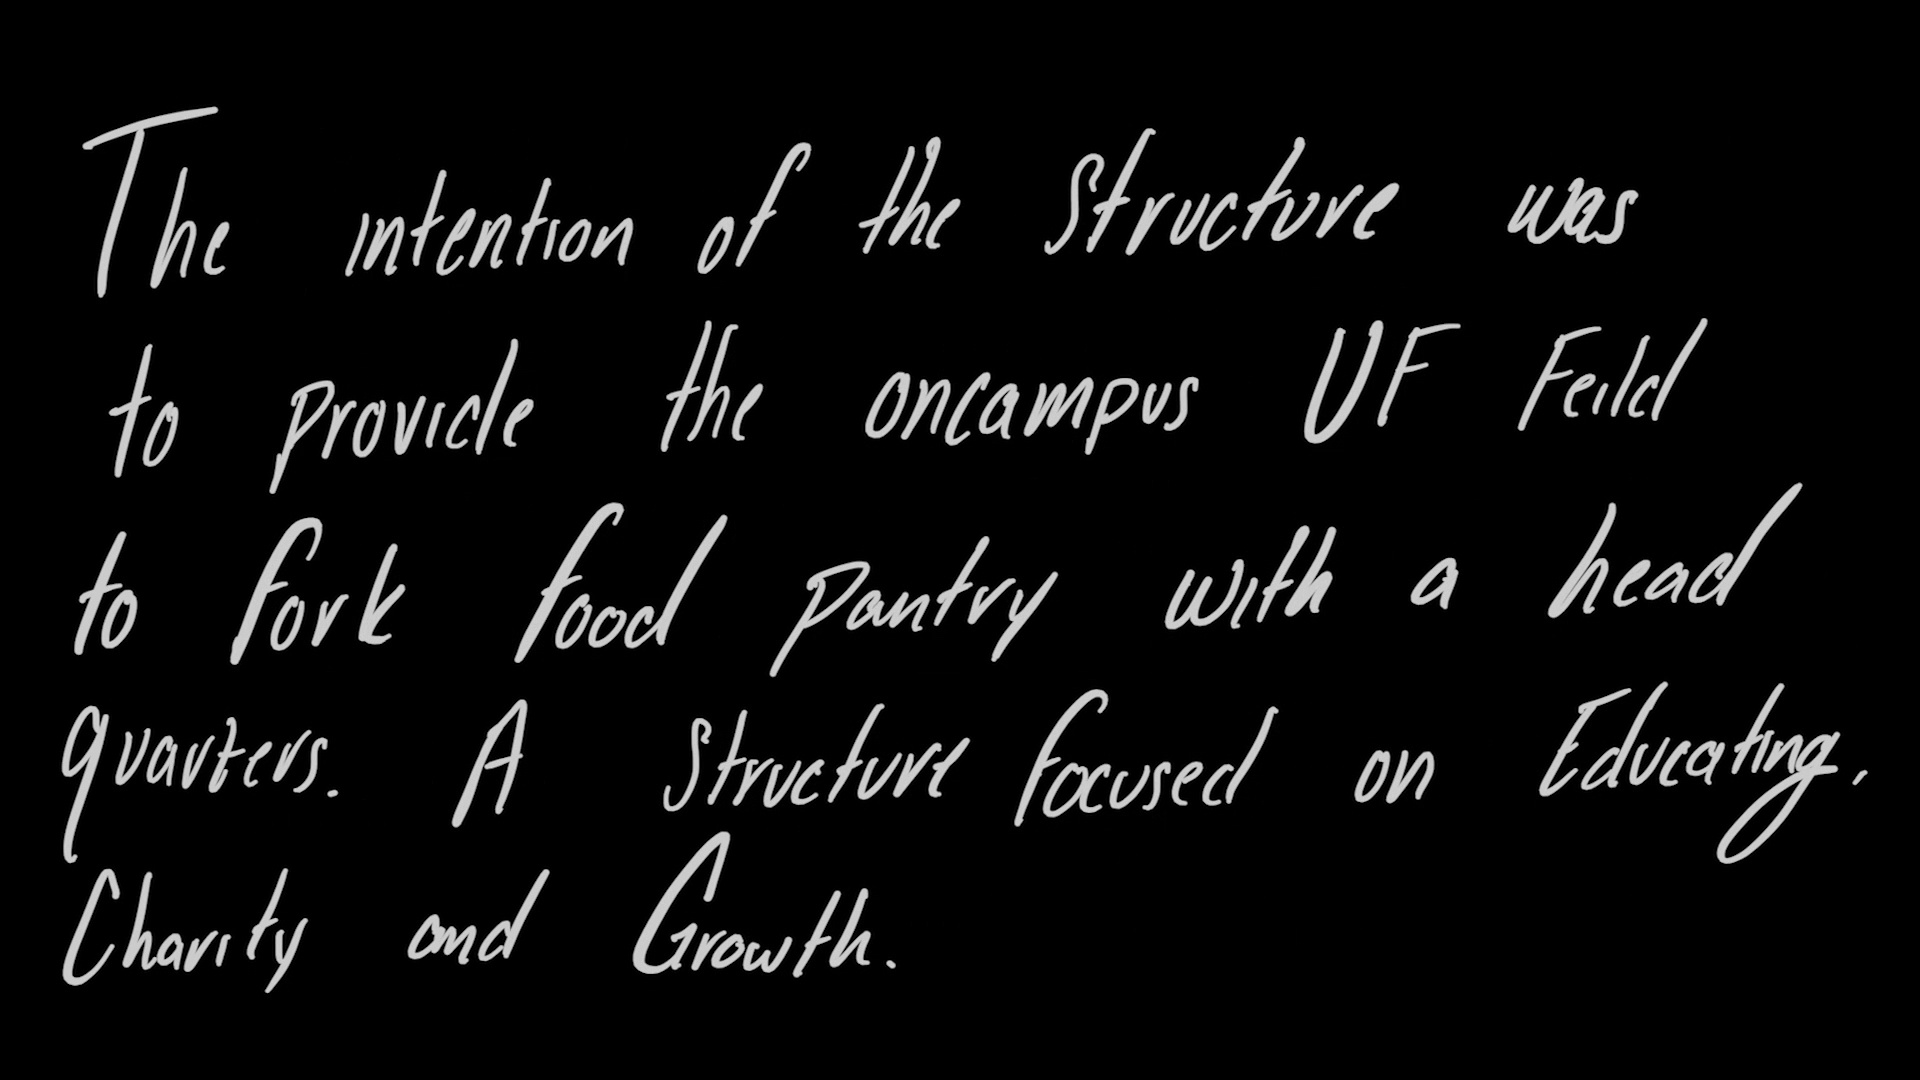 The intention of the Structure was
to provide the oncampus UF Feild
to fork food pantry with a head
quarters. A Structure focused on Educating,
Charity and Growth.